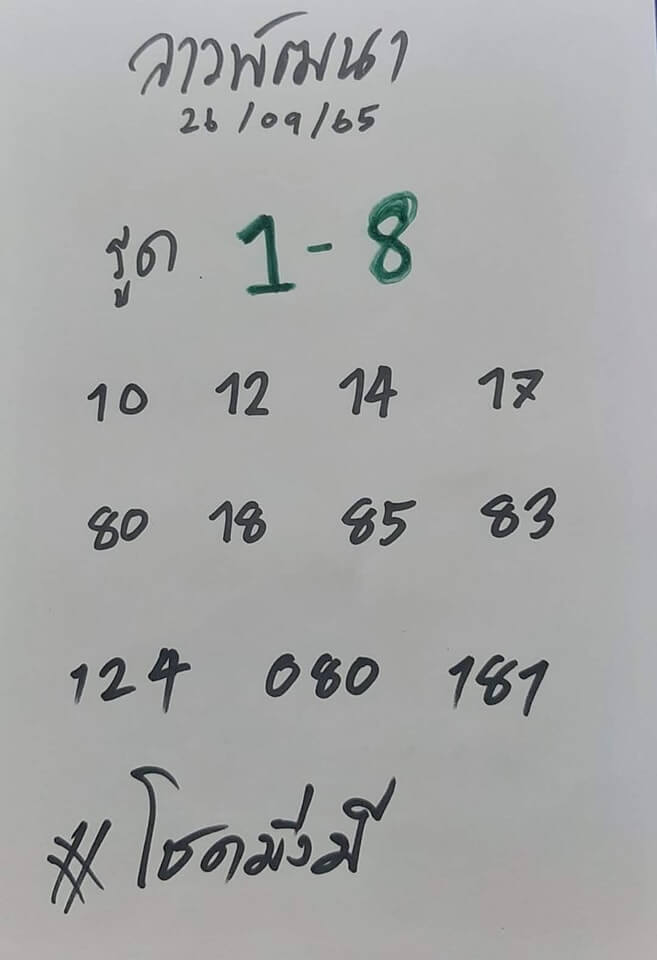 ลาวพัฒนา
26/09/65
รูด 1-8
10 12 14 17
80 18 85 83
124 080 181
#โชคมึงมี